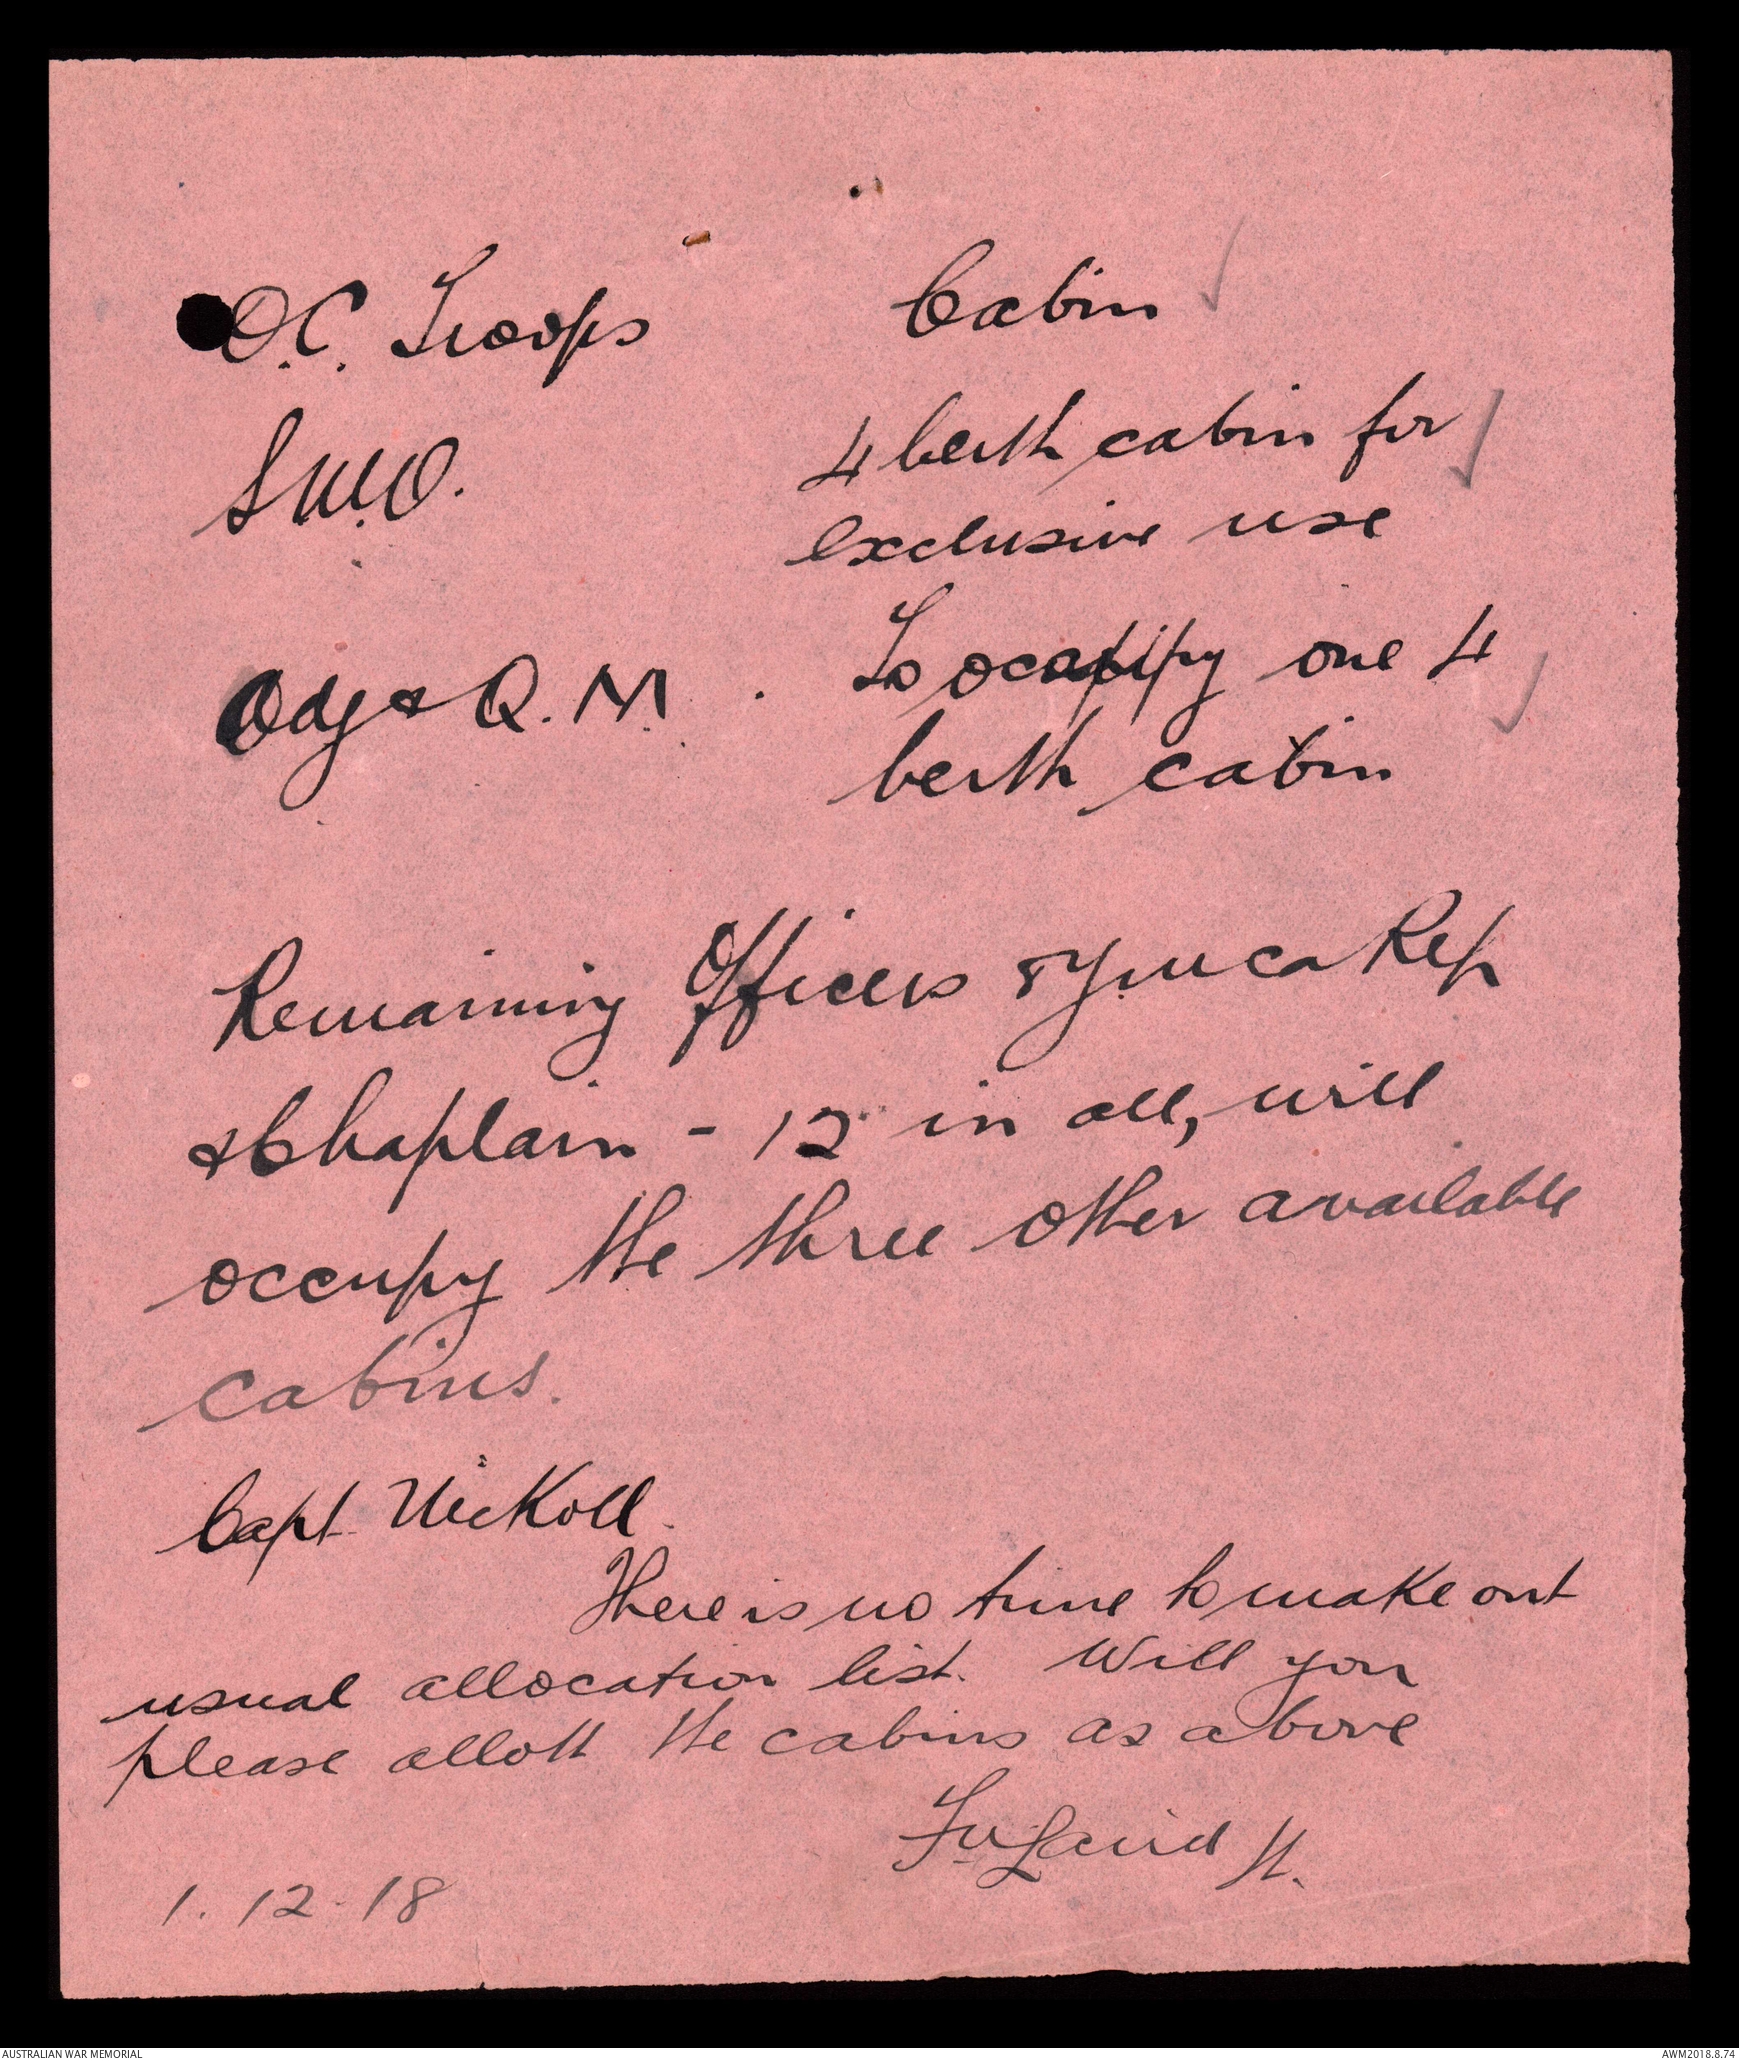 O.C. Troops Cabin ✓
S.M.O. 4 berth cabin for ✓
exclusive use
Adj & Q.M. To occupy one 4 ✓
berth cabin
Remaining Officers & Ymca Rep
& Chaplain - 12 in all, will
occupy the three other available
cabins.
Capt. Nickoll.
There is no time to make out
usual allocation list. Will you
please allott the cabins as above
Laird Lt.
1.12.18
AUSTRALIAN WAR MEMORIAL
AWM2018.8.74